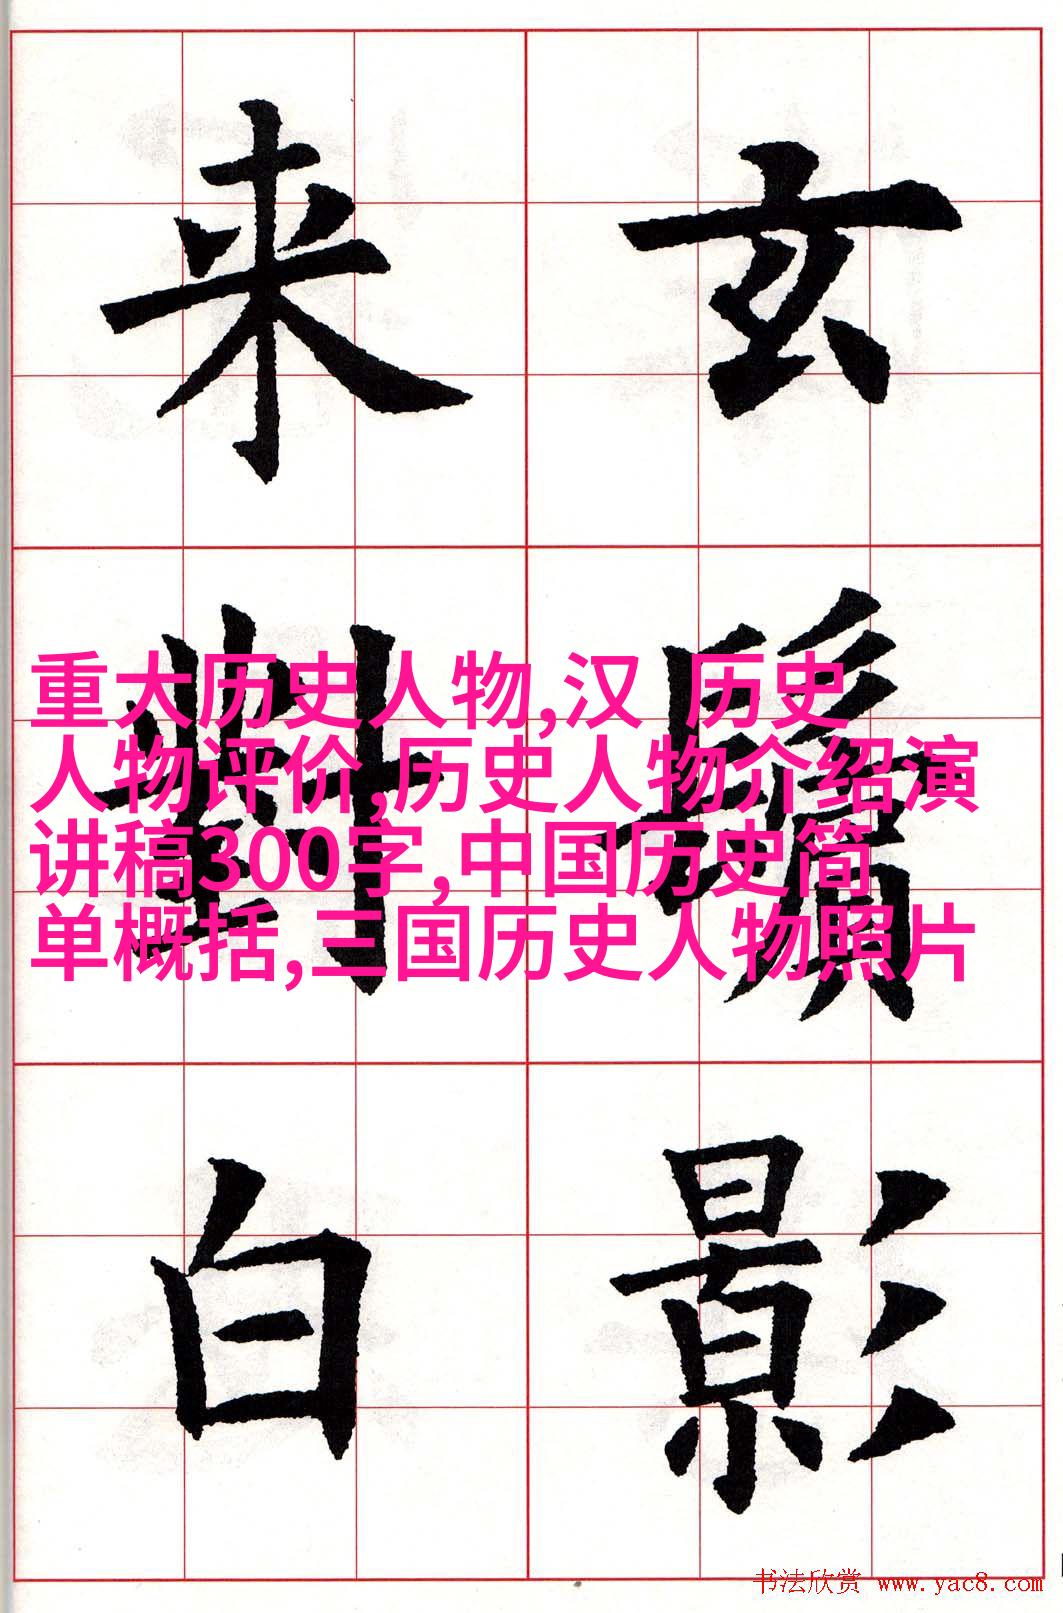 玄鬢影
来對白
重大历史人物,汉 历史
人物评价,历史人物介绍演
讲稿300字,中国历史简
单概括,三国历史人物照片
书法欣赏 www.yac8.com